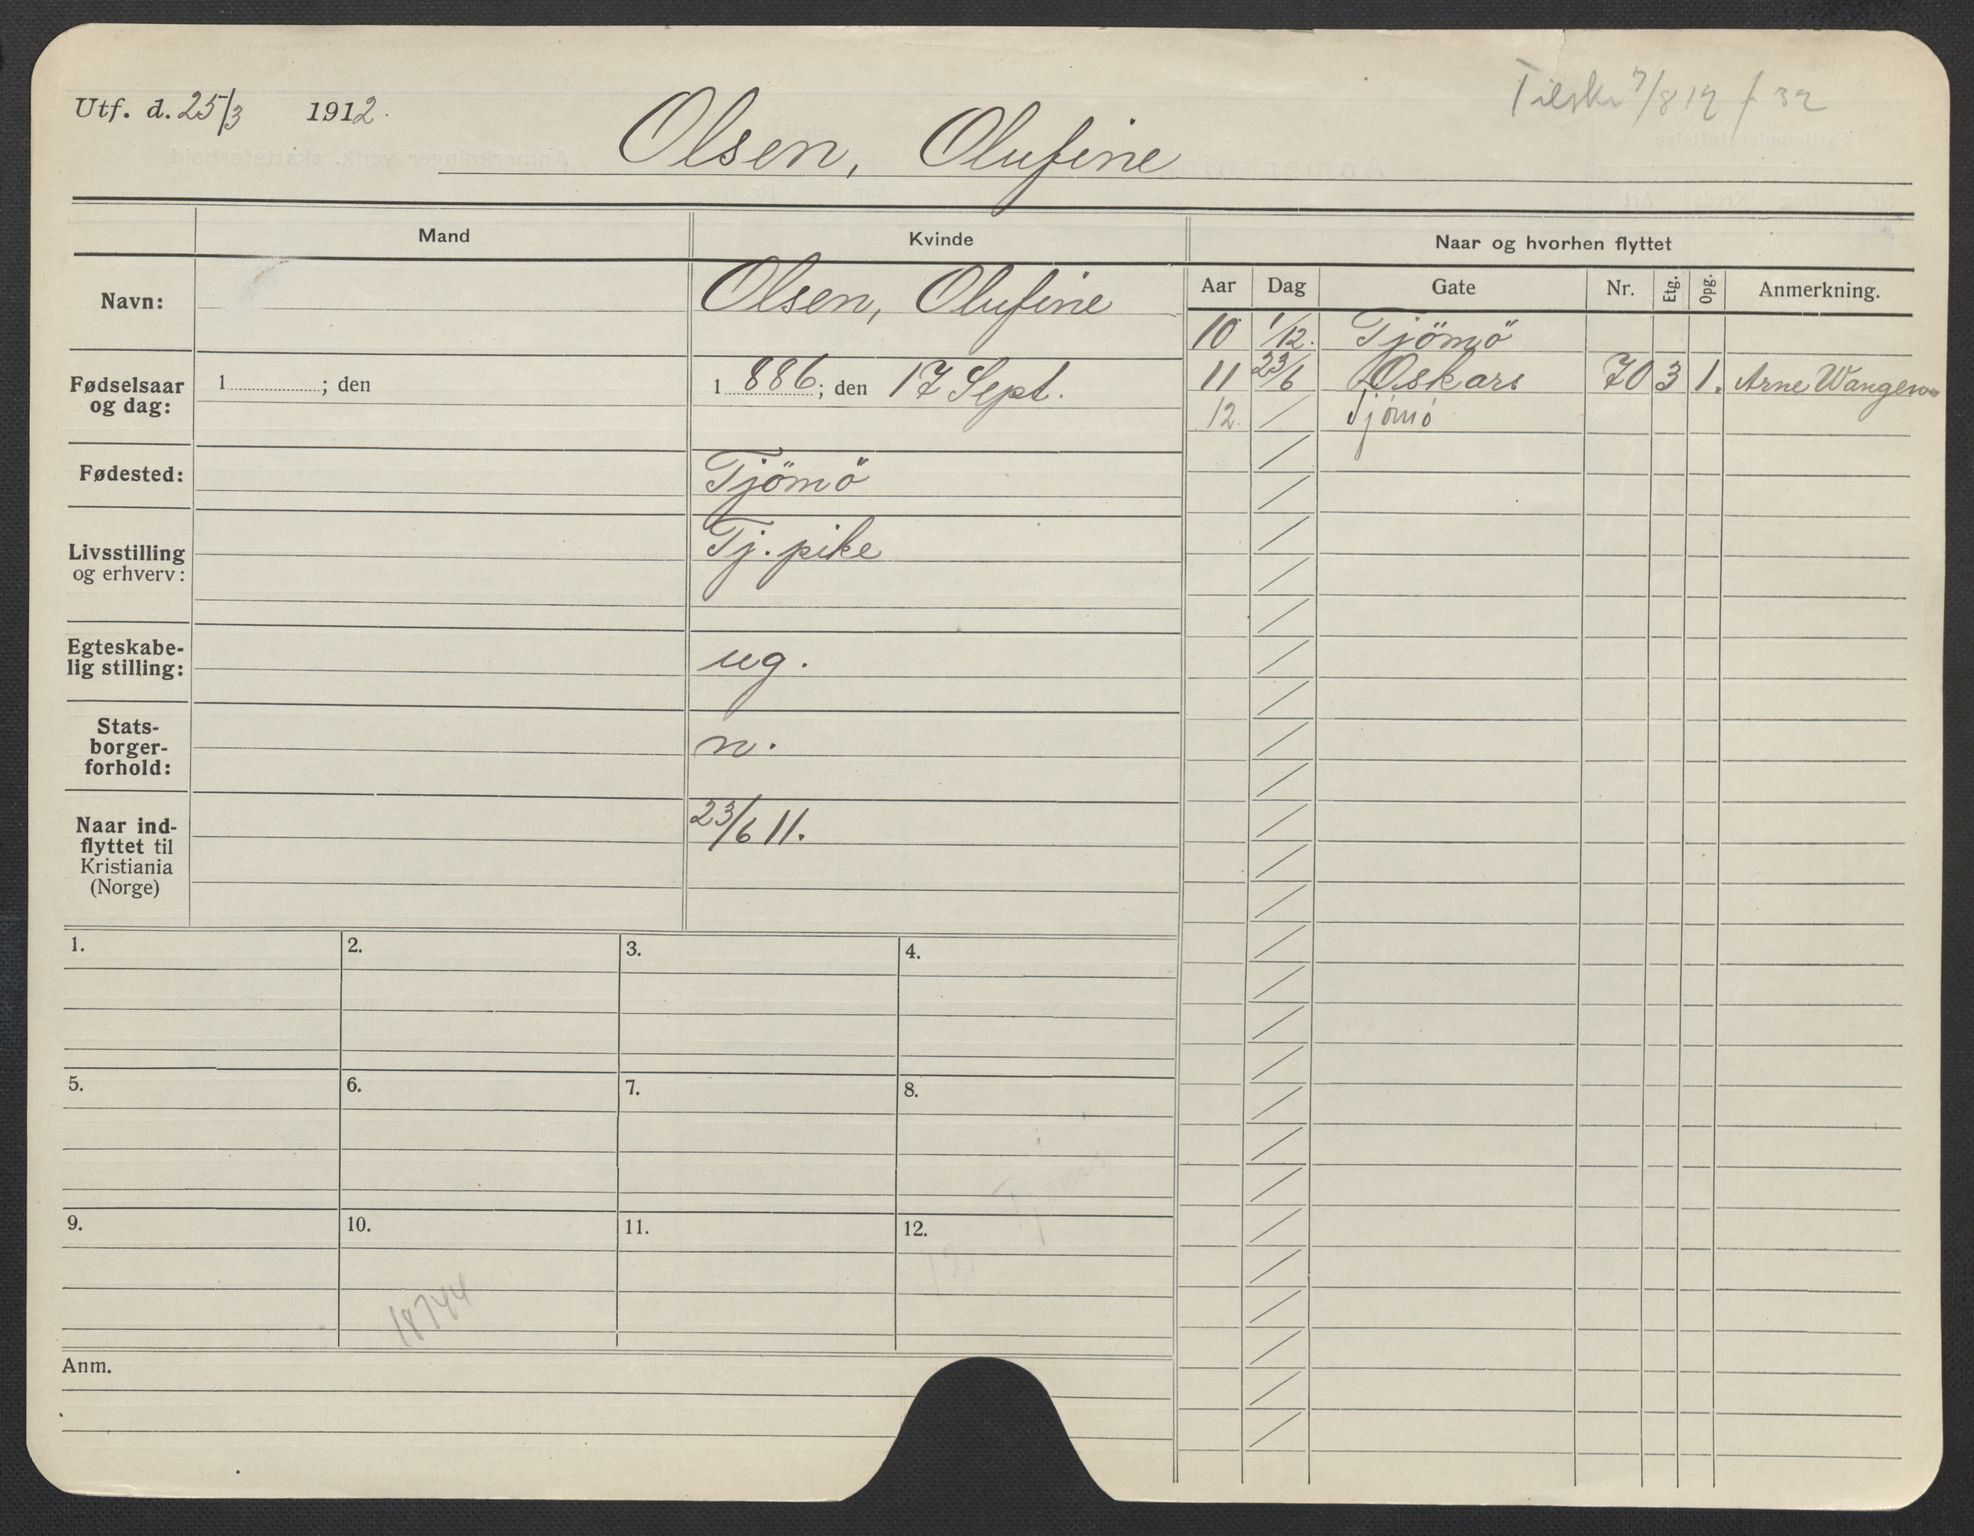 Utf. d. 25/3 1912.
Olsen, Olufine
7/8 12
Mand
Kvinde
Naar og hvorhen flyttet
Aar Dag Gate Nr. Etg. Opg. Anmerkning.
Navn:
Olsen, Olufine
10 1/12. Tjömö
Fødselsaar og dag:
1 ; den
1 886 ; den 17 Sept.
11 23/6 Oskars 70 3 1. Arne Wangen
12. Tjömö
Fødested:
Tjömö
Livsstilling
og erhverv:
Tj. pike
Egteskabe-
lig stilling:
ug.
Stats-
borger-
forhold:
n.
Naar ind-
flyttet til
Kristiania
(Norge)
23/6 11.
1. 2. 3. 4.
5. 6. 7. 8.
9. 10. 11. 12.
18744
Anm.